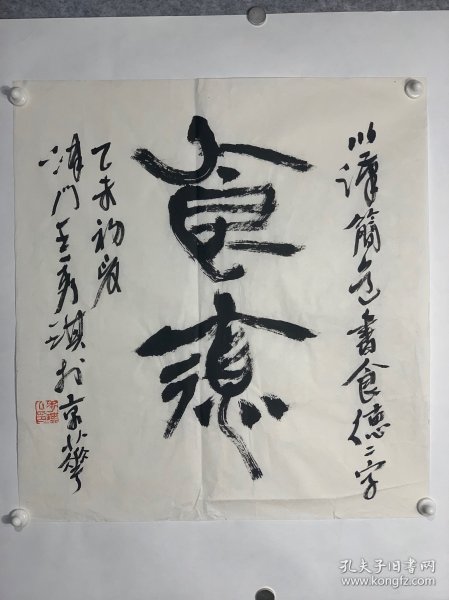 以漢簡意書食德二字
食
德
乙未初夏
津門淇於京華
孔夫子旧书网
www.kongfz.com